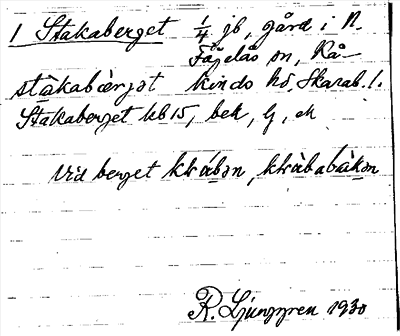 1 Stakaberget 1/4 jb, gård i N.
Fågelås sn, Kå-
stàkabærjət kinds hd, Skarab. l.
Stakaberget kb 15, bek, G, ek
vid berget kkrábən, kkràbabàkən
R. Ljunggren 1930